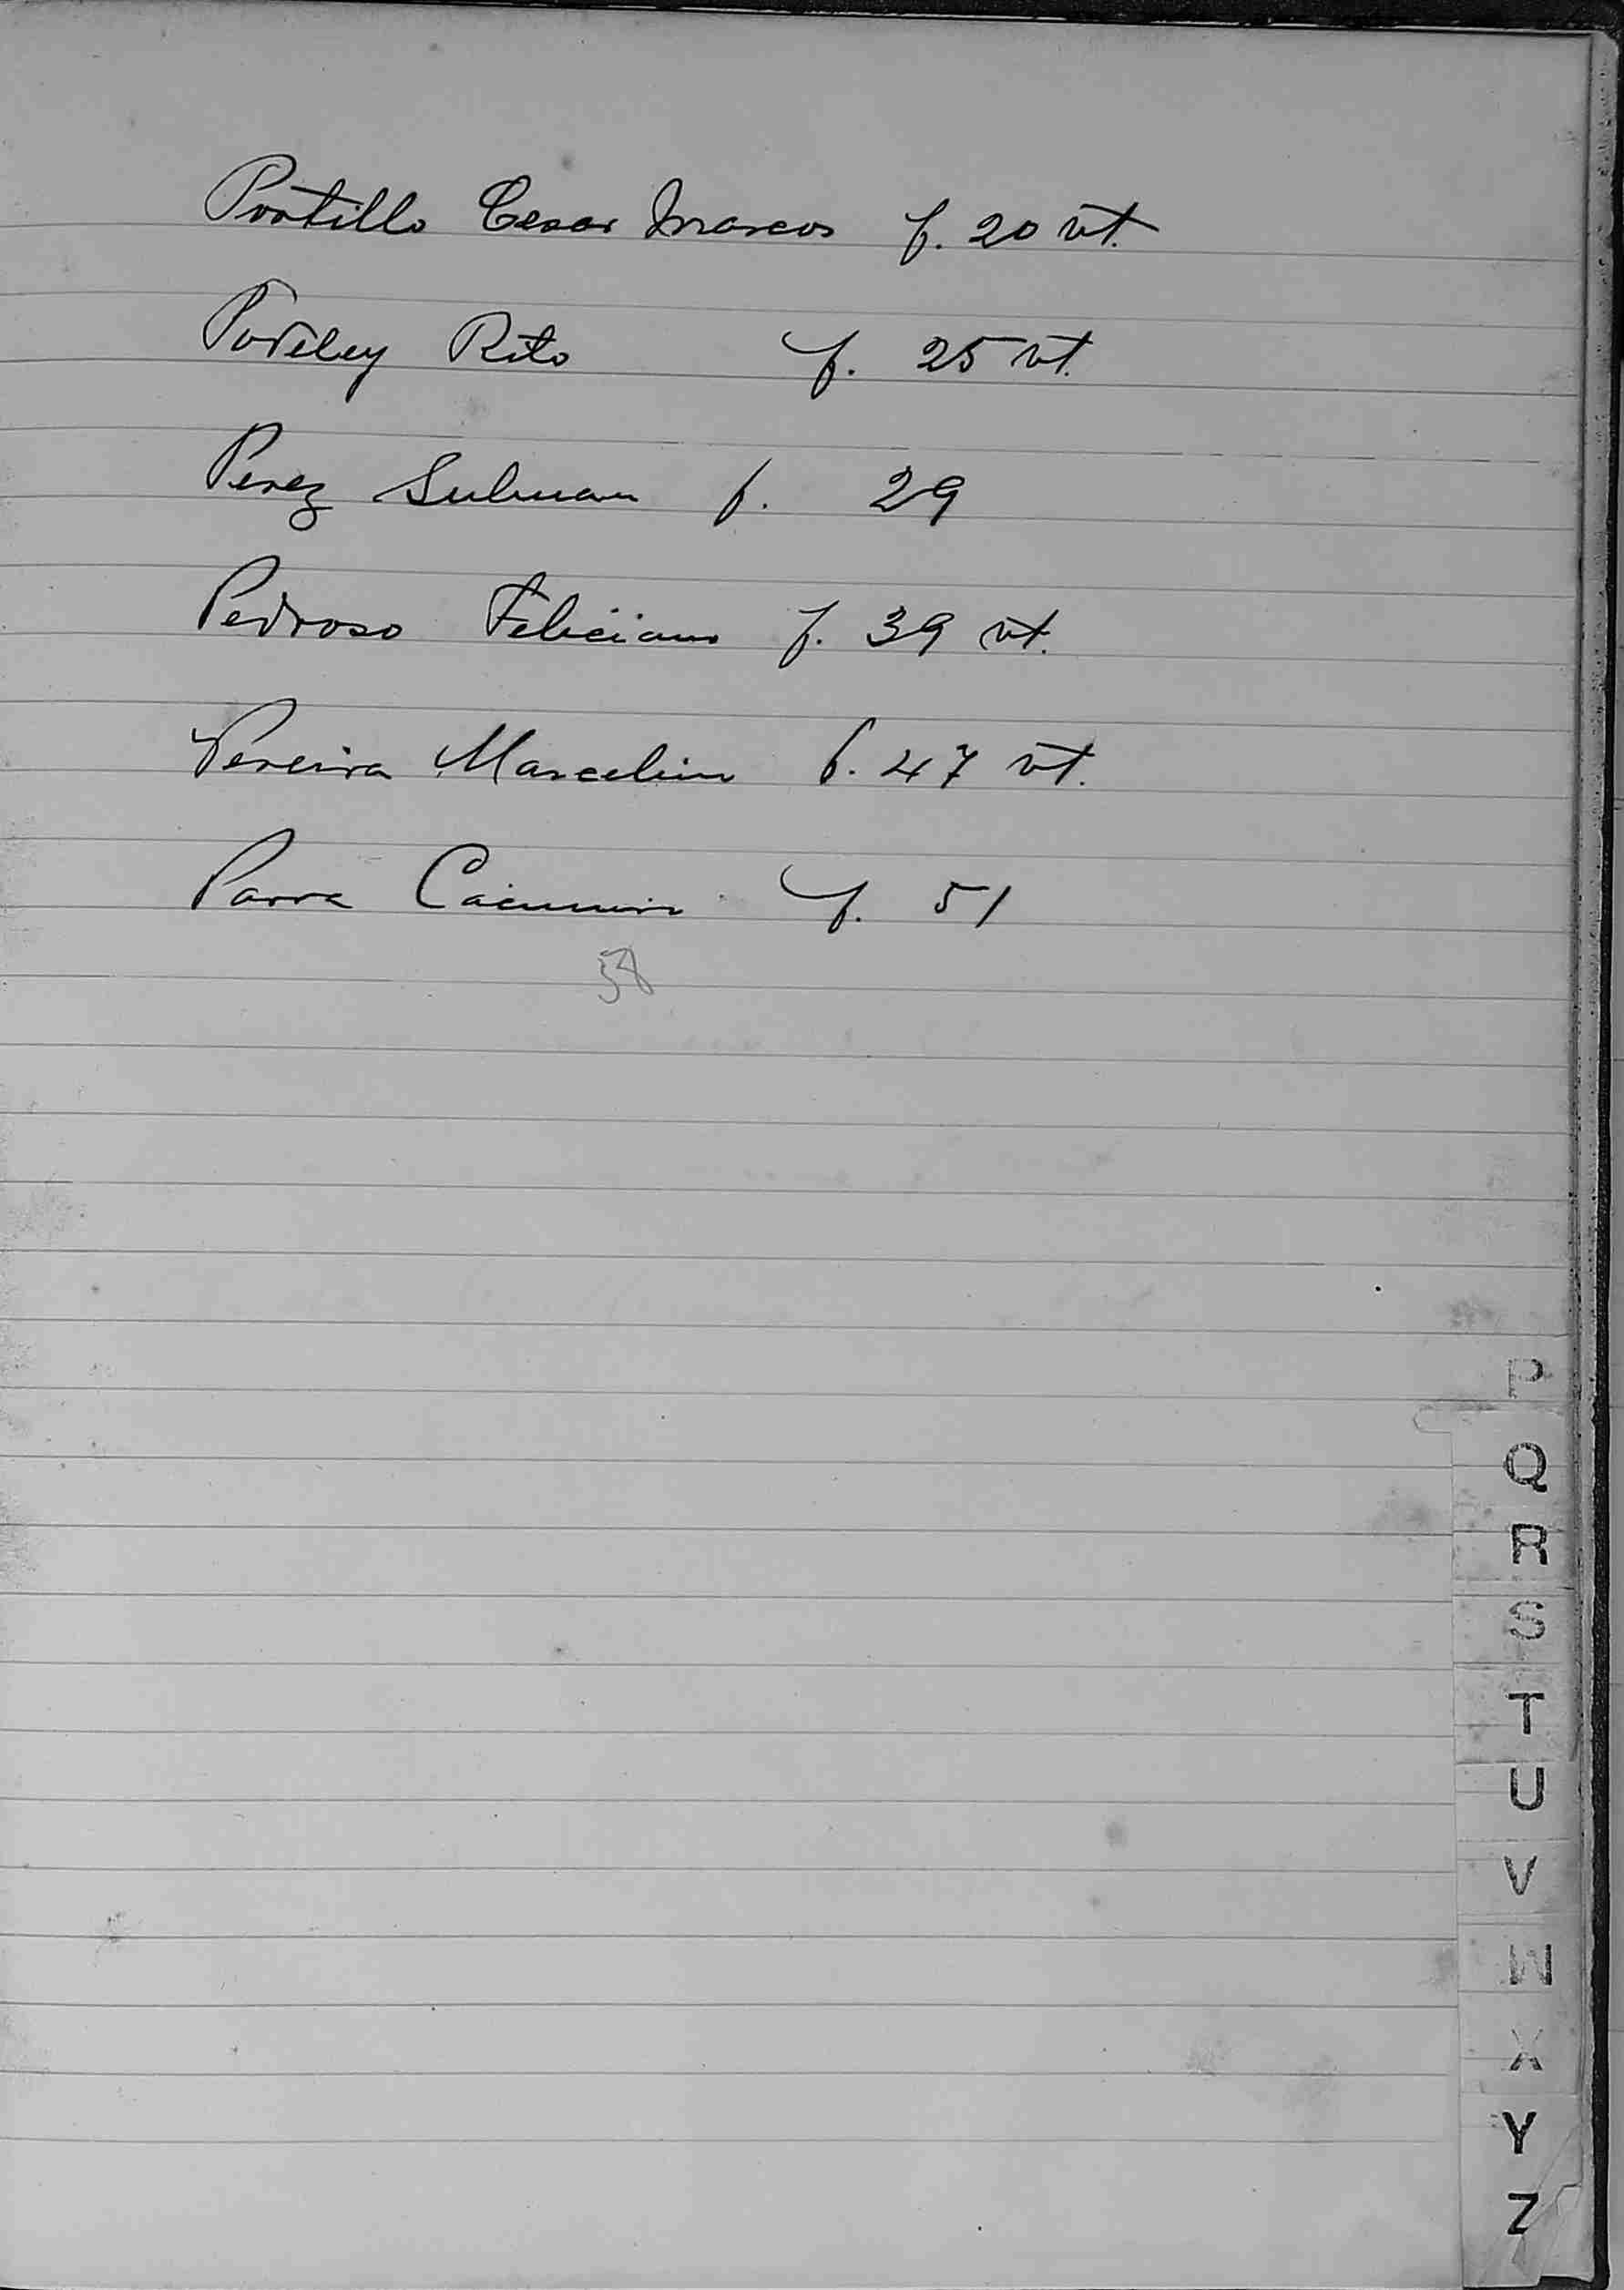 Portillo Cesar Marcos f. 20 vt.
Rito f. 25 vt.
Perez f. 29
Pedroso Feliciano f. 39 vt.
Pereira Marcelino f. 47 vt.
Parra Casimiro f. 51
58
P
Q
R
S
T
U
V
W
X
Y
Z